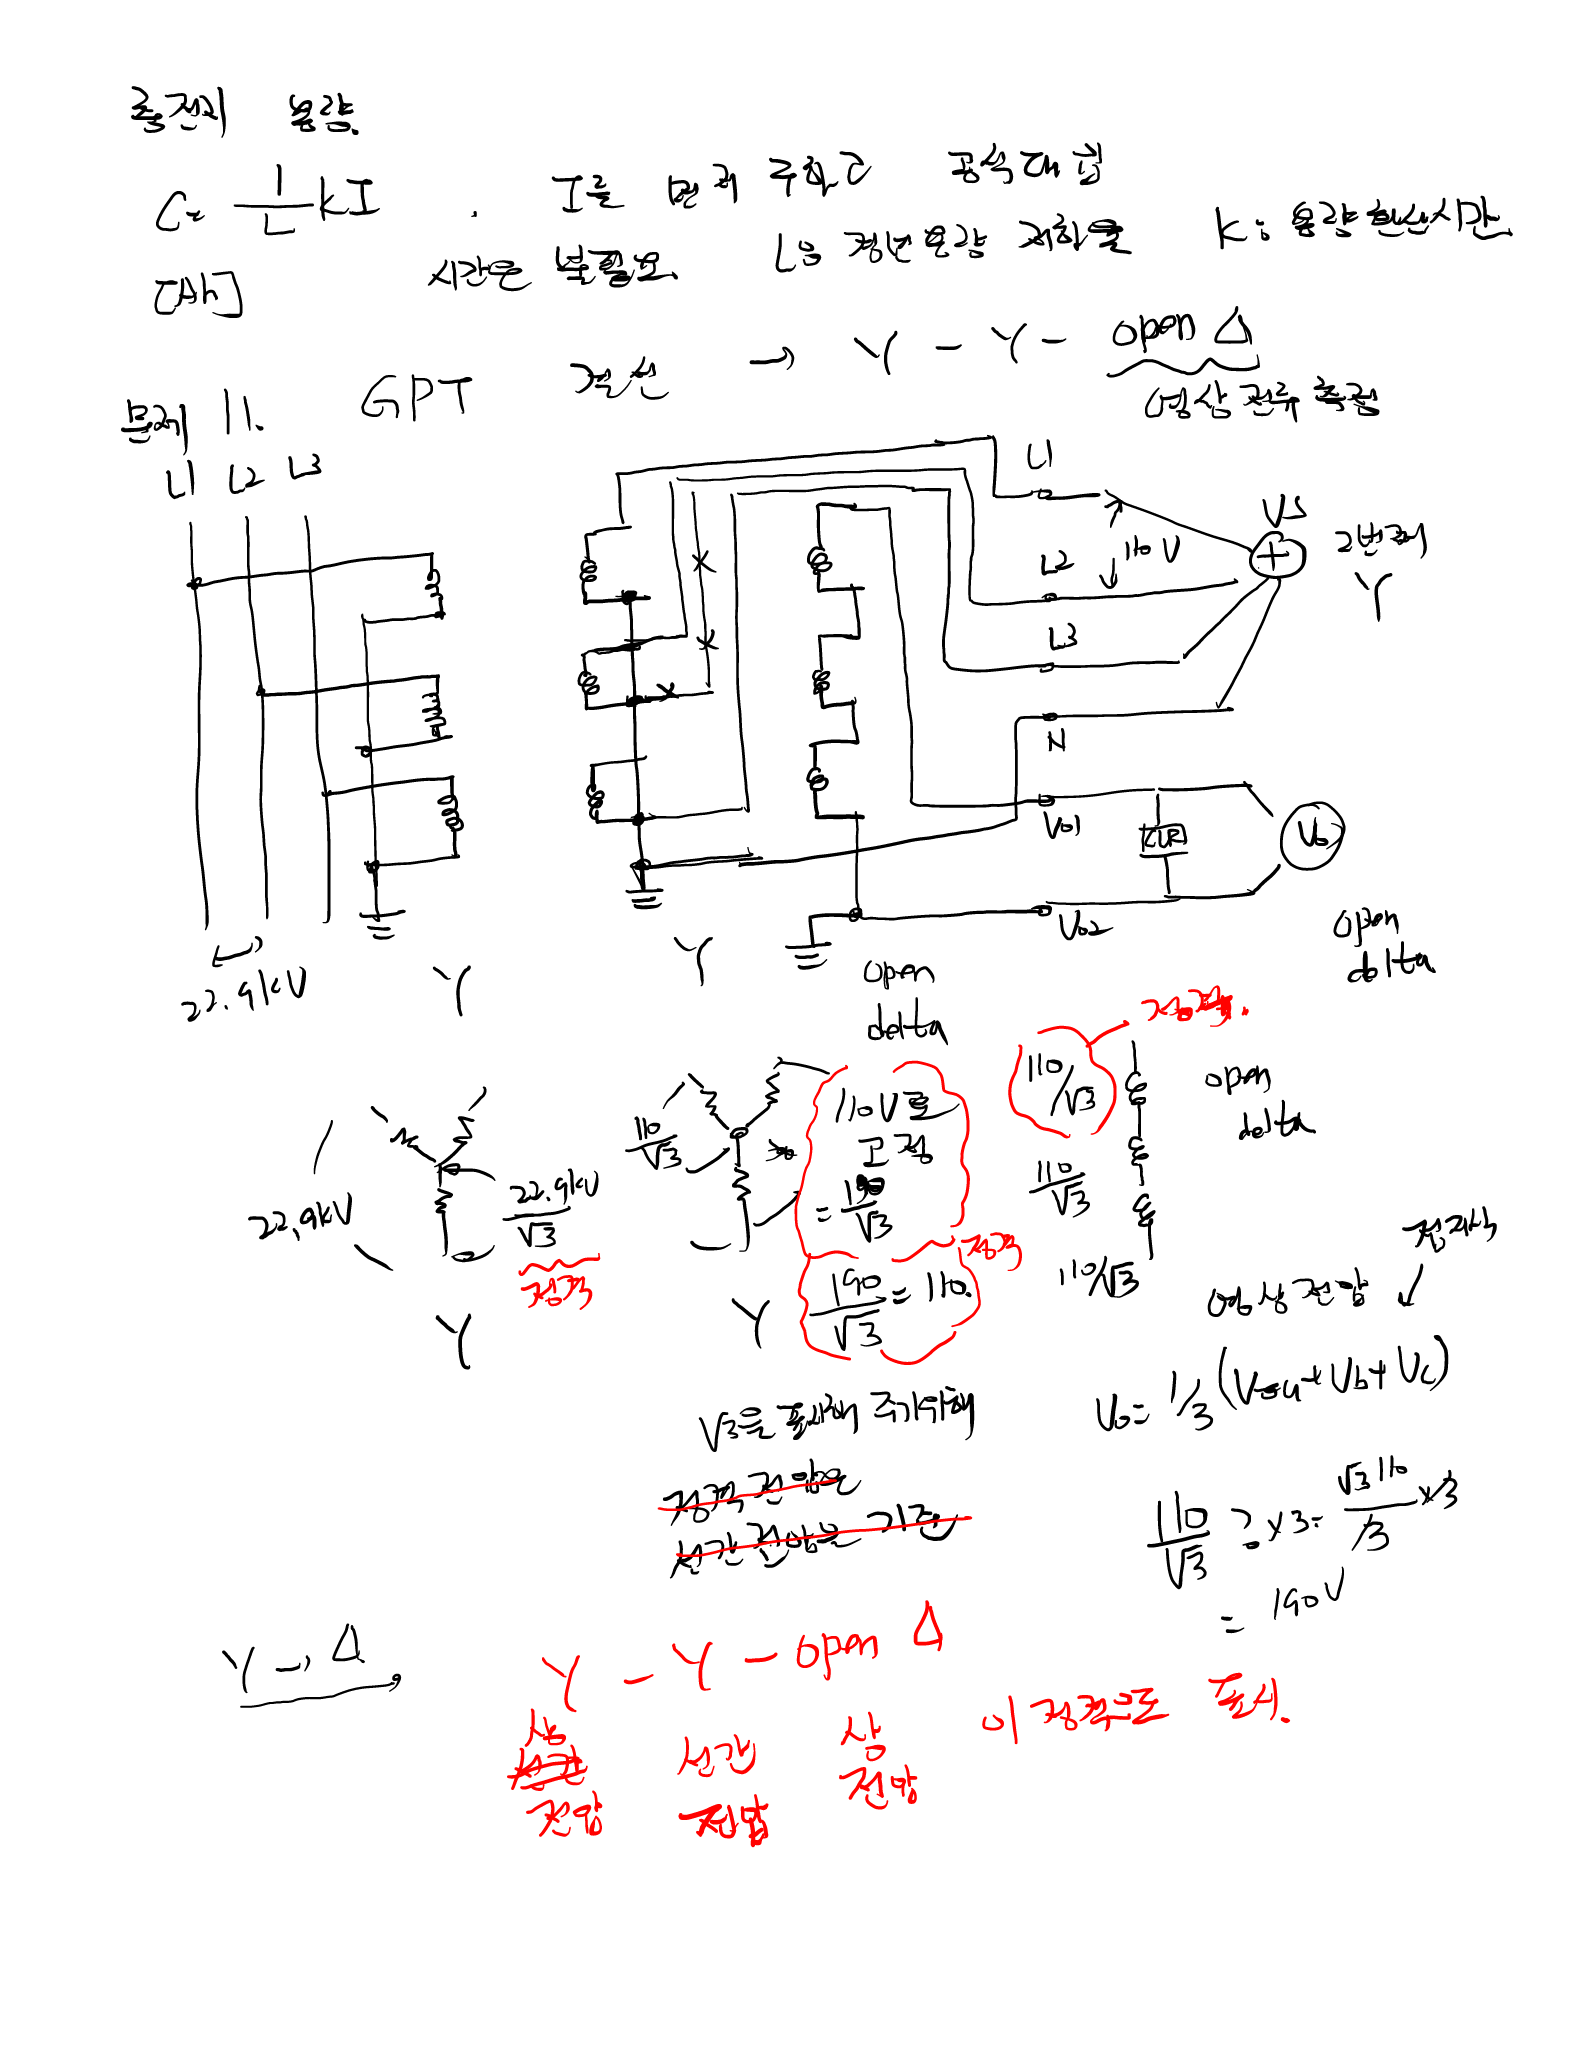 축전지 용량.
C = 1/L KI . I를 먼저 구하고 공식대입
[Ah] 시간은 불필요. L은 경년용량 저하율 K: 용량환산시간.
문제 11. GPT 결선 → Y - Y - open Δ
영상 전류 측정
L1 L2 L3
L1
110 V
VS
2번째
Y
L2
L3
N
Vo1
CLR
Vo
Vo2
open
delta
22.9kV
Y
Y
open
delta
정격.
110/√3
open
delta
110V로
고정
= 190/√3
110/√3
22.9kV
22.9kV/√3
정격
Y
Y
190/√3 = 110.
정격
110/√3
110/√3
전지상
영상전압
√3을 표시해 주기위해
정격 전압은
선간 전압을 기준
Vo = 1/3 (Va + Vb + Vc)
110/√3 ? x3 = √3 110/3 x3
= 190V
Y → Δ,
Y - Y - open Δ
상 선간 상 이 정격으로 표시.
선간
전압 전압 전압